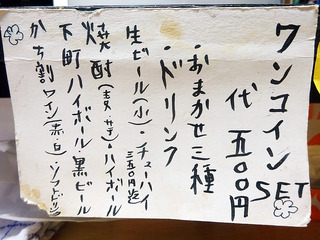 ワンコインSET
代 五〇〇円
・おまかせ三種
・ドリンク
生ビール(小)・チューハイ
三五〇円迄
焼酎(麦・芋)・ハイボール
下町ハイボール・黒ビール
かち割ワイン(赤・白)・ソフトドリンク